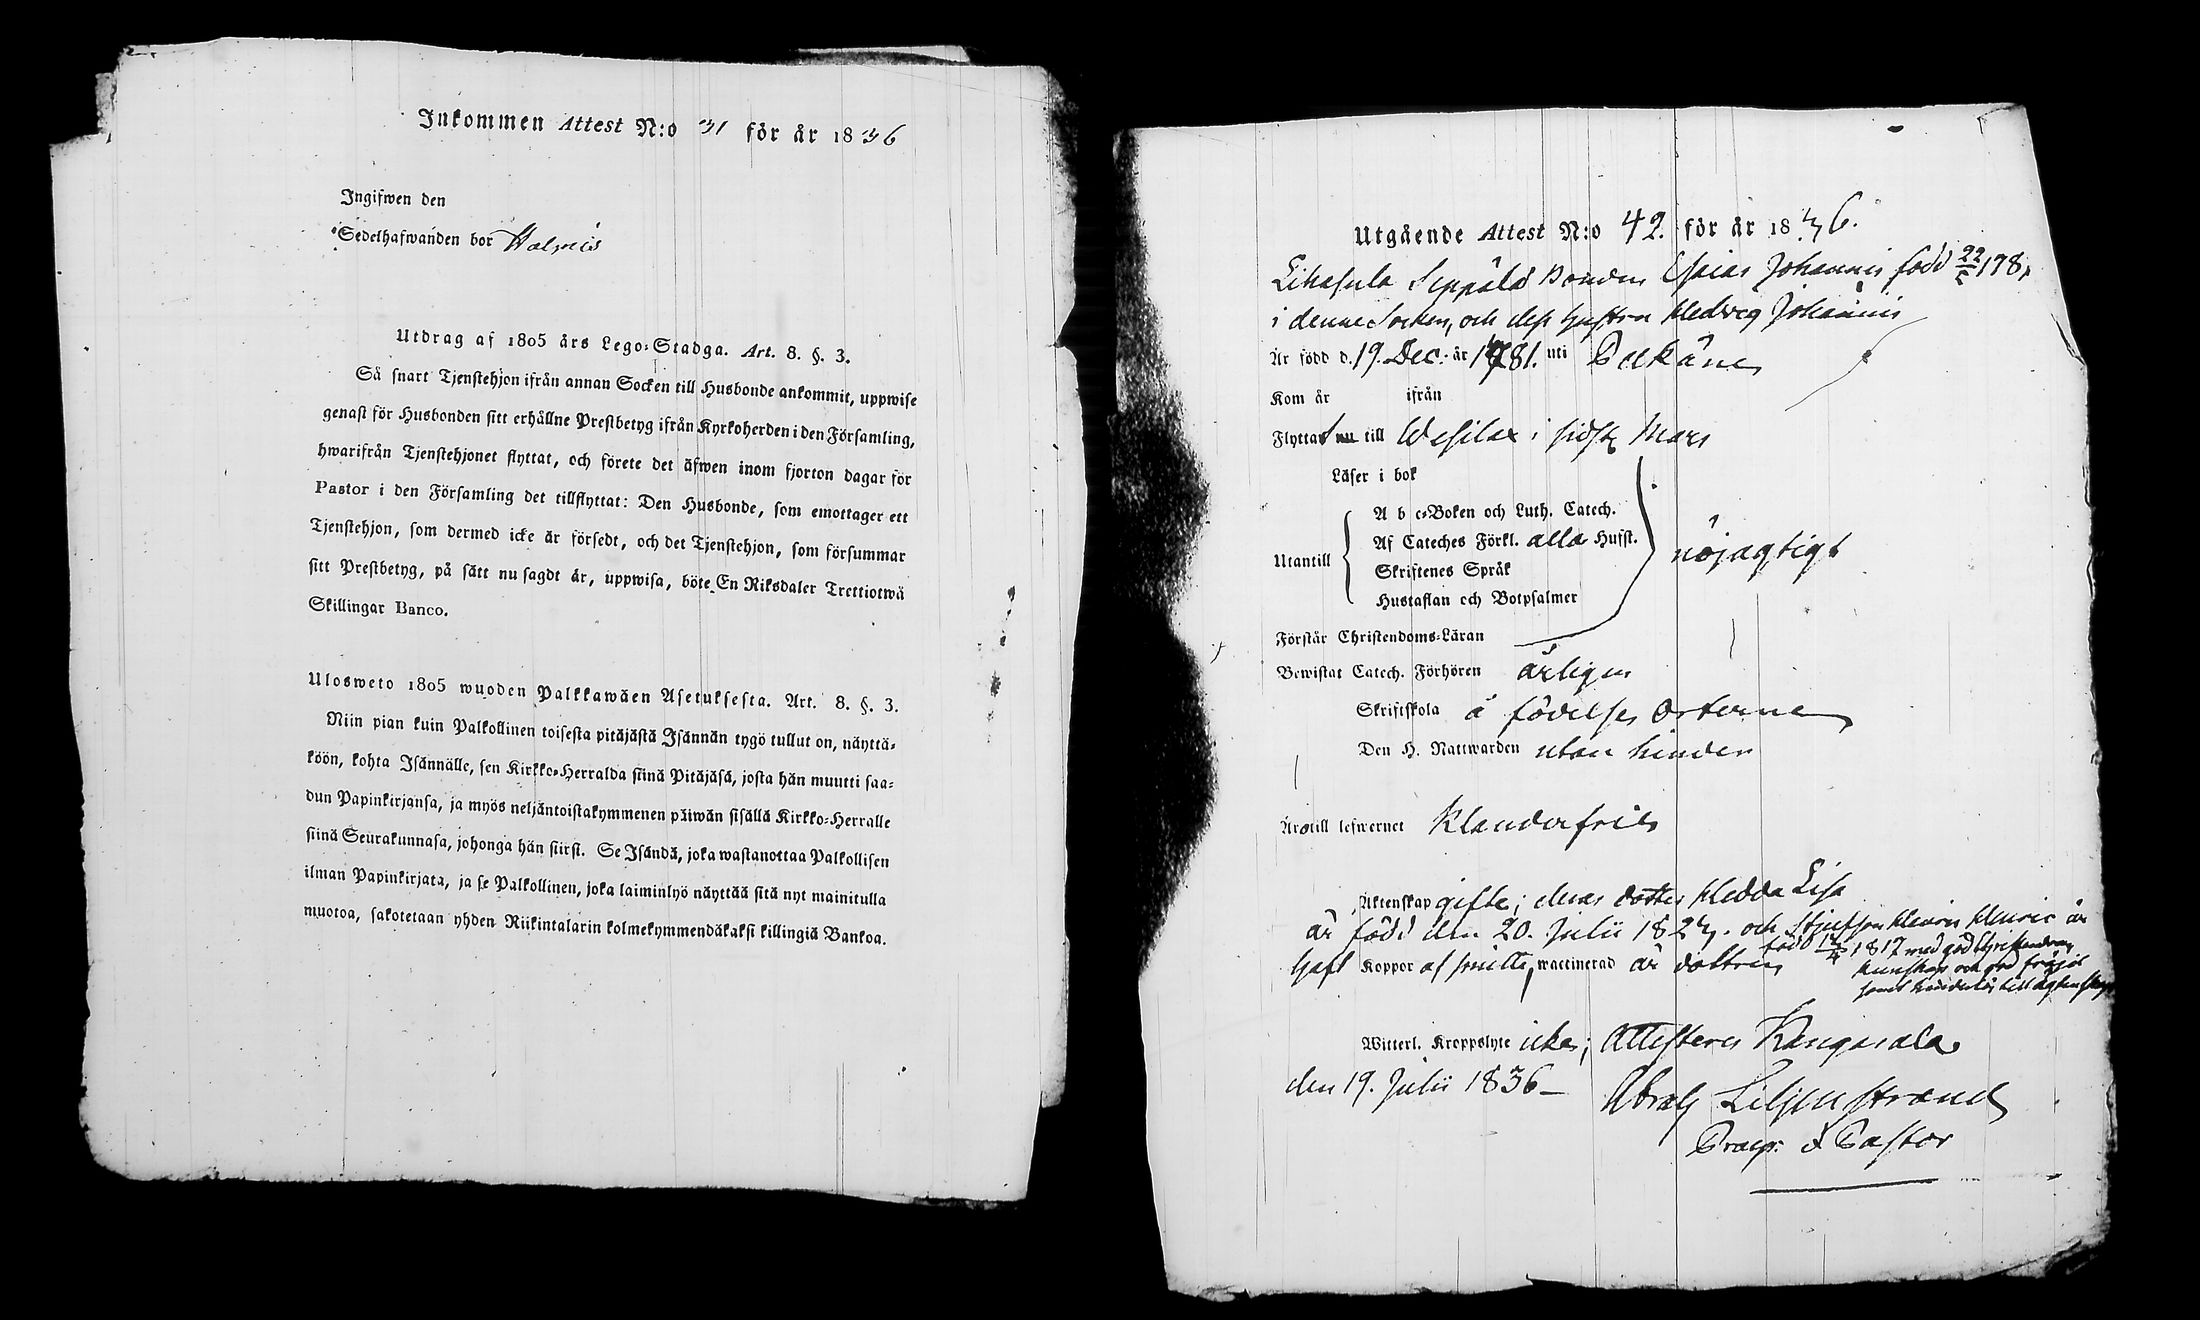 Inkommen Attest N:o 31 för år 1836
Ingifwen den
Sedelhafwanden bor
Utdrag af 1805 års Lego-Stadga. Art. 8. §. 3.
Så snart Tjenstehjon ifrån annan Socken till Husbonde ankommit, uppwise
genast för Husbonden sitt erhållne Prestbetyg ifrån Kyrkoherden i den Församling,
hwarifrån Tjenstehjonet flyttat, och förete det äfwen inom fjorton dagar för
Pastor i den Församling det tillflyttat: Den Husbonde, som emottager ett
Tjenstehjon, som dermed icke är försedt, och det Tjenstehjon, som försummar
sitt Prestbetyg, på sätt nu sagdt är, uppwisa, böte En Riksdaler Trettiotwå
Skillingar Banco.
Ulosweto 1805 wuoden Palkkawäen Asetuksesta. Art. 8. §. 3.
Niin pian kuin Palkollinen toisesta pitäjästä Isännän tygö tullut on, näyttä-
köön, kohta Isännälle, sen Kirkko-Herralda siinä Pitäjäsä, josta hän muutti saa-
dun Papinkirjansa, ja myös neljäntoistakymmenen päiwän sisällä Kirkko-Herralle
siinä Seurakunnasa, johonga hän siirsi. Se Isändä, joka wastanottaa Palkollisen
ilman Papinkirjata, ja se Palkollinen, joka laiminlyö näyttää sitä nyt mainitulla
muotoa, sakotetaan yhden Riikintalarin kolmekymmendäkaksi killingiä Bankoa.
Utgående Attest N:o 42. för år 1836.
Lihasula Seppälä Bonden Esaias Johannis född 22/5 178
i denne Socken, och dess hustru Hedvig Johannis
Är född d. 19. Dec. år 1781. uti Pelkäne
Kom år ifrån
Flyttat till Wesilax i sidste Mars
Läser i bok
A b c-Boken och Luth. Catech.
Utantill Af Cateches Förkl. alla Hufst. nöjagtigt
Skriftenes Språk
Hustaflan och Botpsalmer
Förstår Christendoms-Läran
Bewistat Catech. Förhören årligen
Skriftskola å födelse orterne
Den H. Nattwarden utan hinder
Äro till lefwernet Klanderfrie
Äktenskap gifte; deras dotter Hedda Lisa
är född den 20. Julii 1823. och Stjufson Henric är
född 1817 med god Christendoms
haft Koppor af smitta, waccinerad är dottren
kunskap och god frejd
samt hinderlös till ägtenskap
Witterl. Kroppslyte icke; Attesteras Kangasala
den 19. Julii 1836_
Abrah Liljenstrand
Praep. & Pastor